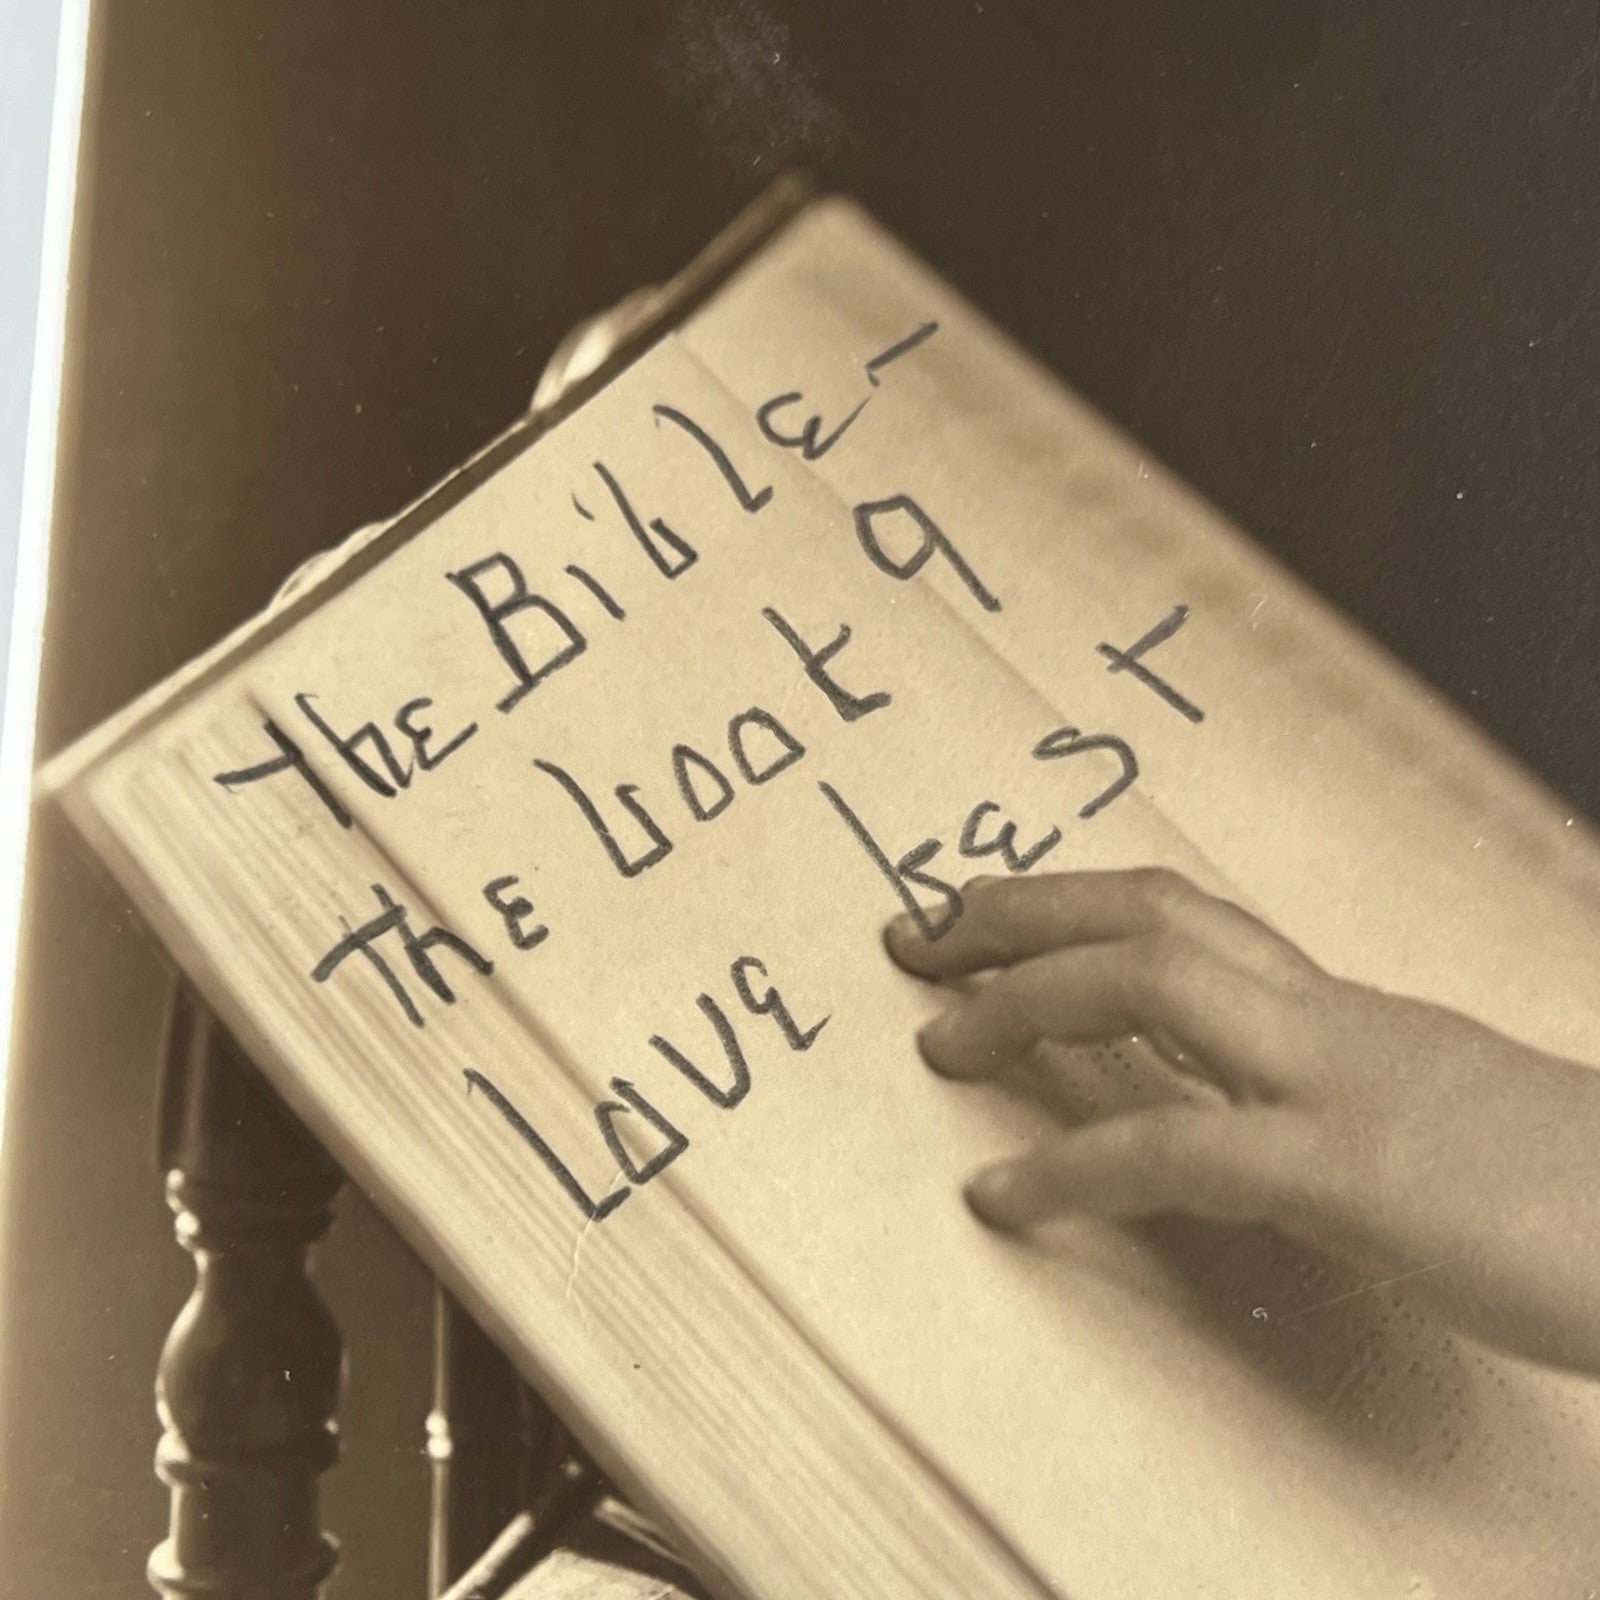 The Bible -
The book I
Love best